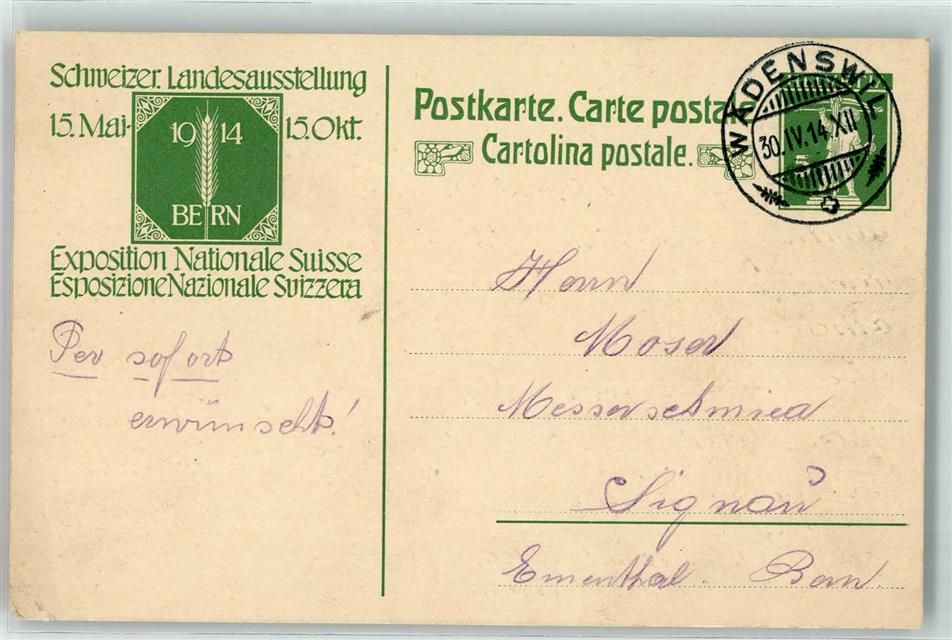 Schweizer. Landesausstellung
15. Mai - 15. Okt.
19 14
BERN
Exposition Nationale Suisse
Esposizione Nazionale Svizzera
Per sofort
erwünscht!
Postkarte. Carte posta
Cartolina postale.
WÄDENSWIL
30.IV.14 XII
Herrn
Moser
Messerschmied
Signau
Ementhal. Bern.